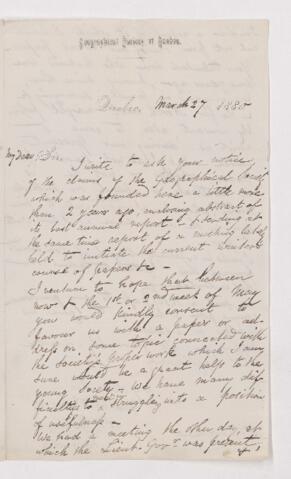 Geographical Society of Quebec.
Quebec, March 27 1880
My Dear Sir,
I write to ask your notice
of the claims of the Geographical Society
which was founded here a little more
than 2 years ago, enclosing abstract of
its last annual report & sending at
the same time report of a meeting lately
held to initiate the current
course of papers &c -
I venture to hope that between
now & the 1st or 2nd week of May
you would kindly consent to
favour us with a paper or ad-
dress on some topic connected with
the Society's proper work which I am
sure would be a great help to the
young Society - We have many dif-
ficulties to struggling into a position
of usefulness -
We had a meeting the other day, at
which the Lieut. Govr. was present,